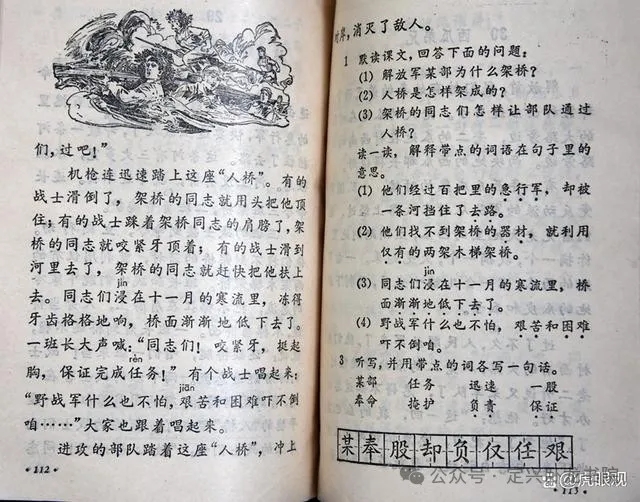 们，过吧！”
机枪连迅速踏上这座“人桥”。有的
战士滑倒了，架桥的同志就用头把他顶
住；有的战士踩着架桥同志的肩膀了，架
桥的同志就咬紧牙顶着；有的战士滑到
河里去了，架桥的同志就赶快把他扶上
jìn
去。同志们浸在十一月的寒流里，冻得
牙齿格格地响，桥面渐渐地低下去了。
一班长大声喊，“同志们！咬紧牙，挺起
rèn
胸，保证完成任务！”有个战士唱起来：
jiān
“野战军什么也不怕，艰苦和困难吓不倒
咱……”大家也跟着唱起来。
进攻的部队踏着这座“人桥”，冲上
·112·
对岸，消灭了敌人。
1 默读课文，回答下面的问题：
(1) 解放军某部为什么架桥？
(2) 人桥是怎样架成的？
(3) 架桥的同志们怎样让部队通过
人桥？
读一读，解释带点的词语在句子里的
意思。
(1) 他们经过百把里的急行军，却被
一条河挡住了去路。
(2) 他们找不到架桥的器材，就利用
仅有的两架木梯架桥。
jìn
(3) 同志们浸在十一月的寒流里，桥
面渐渐地低下去了。
(4) 野战军什么也不怕，艰苦和困难
吓不倒咱。
3 听写，并用带点的词各写一句话。
某部 任务 迅速 一股
奉命 掩护 负责 保证
某奉股却负仅任艰
公众号·定兴
13·
@虎眼观